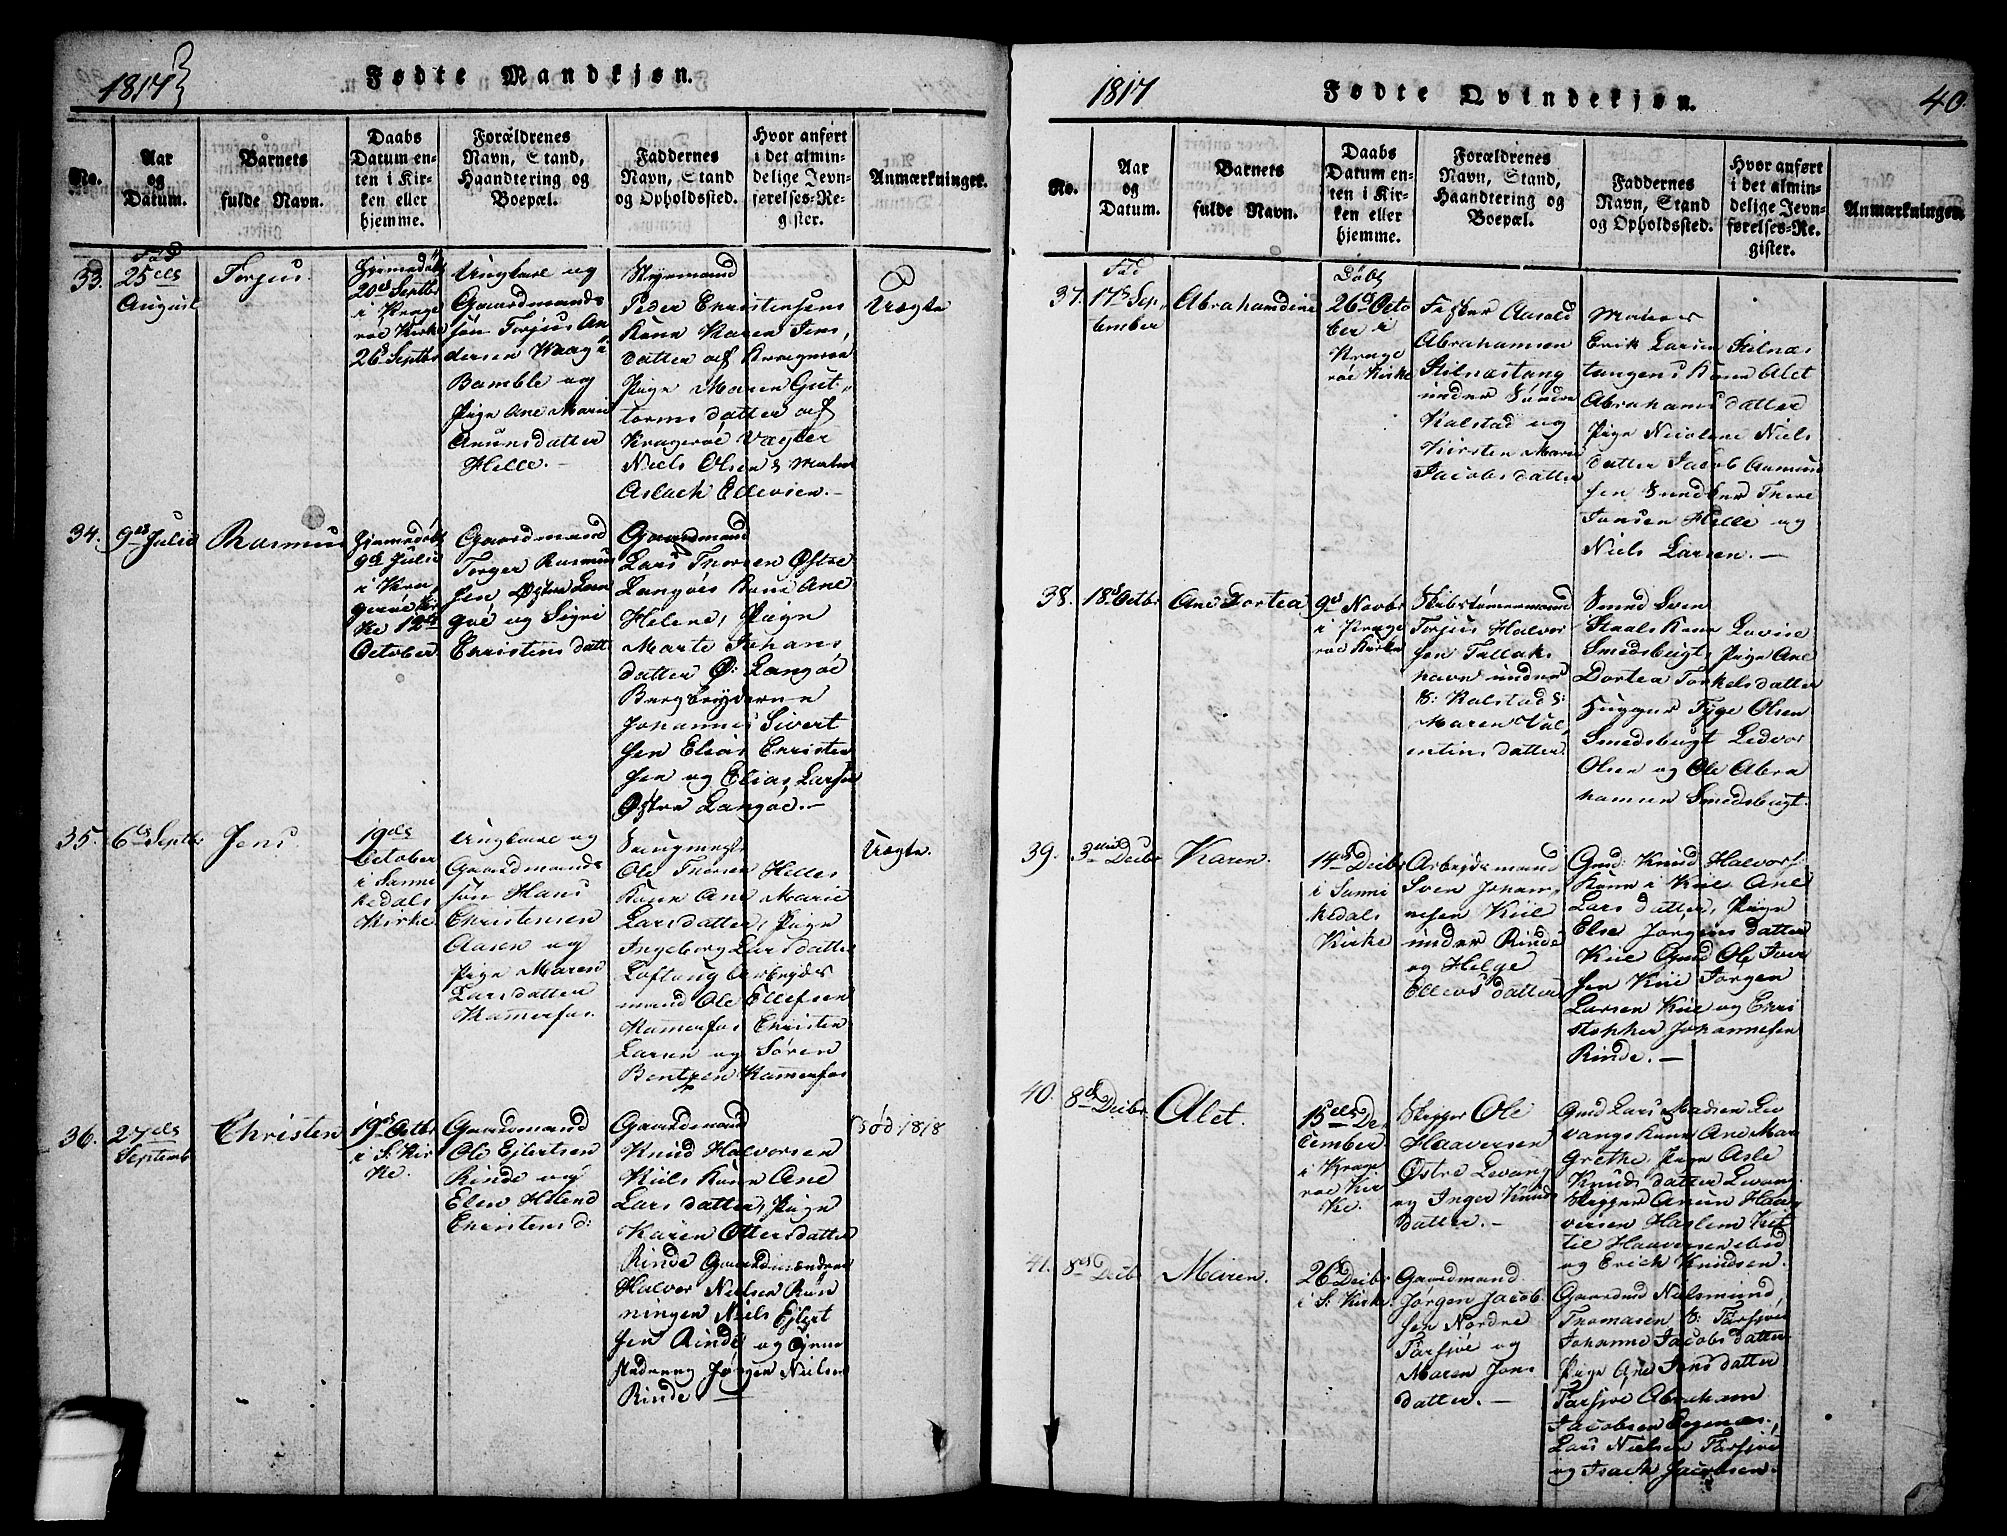 1817
Fødte Mandkjøn.
No.
Aar
og
Datum.
Barnets
fulde Navn.
Daabs
Datum en-
ten i Kir-
ken eller
hjemme.
Forældrenes
Navn, Stand,
Haandtering og
Boepæl.
Faddernes
Navn, Stand
og Opholdssted.
Hvor anført
i det almin-
delige Jevn-
førelses-Re-
gister.
Anmærkninger.
33.
Fød
25de
August
Torjus.
Hjemedøbt
20de Septbr
i Krage
røe Kirke
26d Septbr
Ungkarl og
Gaardmands
søn Torjus An
dersen Waag i
Bamble og
Pige Ane Marie
Anunsdatter
Helle.-
Styrmand
Peder Christensens
Kone Karen Jens
datter af Krageröe,
Pige Maren Gut-
tormsdatter af
Krageröe Vægter
Niels Olsen &
Aslach Ellevsen.-
Uægte
34.
9de Julii
Rasmus
Hjemedøbt
9de Julii
i Kra
geröe Kir
ke 12te
October
Gaardmand
Torger Rasmus
sen Østre Lan
göe og Signi
Christensdatt
Gaardmand
Lars Thorsen Østre
Langöes Kone Ane
Helene, Pigen
Marte Johans
datter Ø: Langöe
Bergbryderne
Johannes Sivert
sen Elias Christen
sen og Elias Larsen
Østre Langöe.-
35.
6te Septbr
Jens
19de
October
i Sanni
kedals
Kirke
Ungkarl og
Gaardmands
søn Hans
Christensen
Aasen og
Pige Maren
Larsdatter
Kamerfos.
Ole Thorsen Helles
Kone Ane Marie
Larsdatter, Pigen
Ingeborg Larsdatter
Loftang Arbeyds
mand Ole Ellefsen
Kamerfos Christen
Larsen og Sören
Bentzen Kamerfos
Uægte.
36.
27de
Septembr
Christen
19de Octbr
i S. Kir
ke.
Gaardmand
Ole Ejlertsen
Rinde og
Elen Helene
Christensd:
Gaardmand
Knud Halvorsen
Kiils Kone Ane
Larsdatter, Pige
Karen Ottersdatter
Rinde Gaardmændene
Halvor Nielsen Røn
ningen Niels Ejlert
sen Rinde og Tjene
stedreng Jørgen Nielsen
Rinde -
Død 1818
1817
Fødte Qvindekjøn.
40.
No.
Aar
og
Datum.
Barnets
fulde Navn.
Daabs
Datum en-
ten i Kir-
ken eller
hjemme.
Forældrenes
Navn, Stand,
Haandtering og
Boepæl.
Faddernes
Navn, Stand
og Opholdssted.
Hvor anført
i det almin-
delige Jevn-
førelses-Re-
gister.
Anmærkninger.
37.
Fød
17de Sep-
tember
Abrahamdine
Döbt
26de Octo
ber i
Krage
röe Kirke
Fisker Aasold
Abrahamsen
Stilnæstang
under Söndre
Kalstad og
Kirsten Marie
Jacobsdatter
Matros
Erik Larsen Stilnæs
tangens Kone Alet
Abrahamsdatter
Pige Nicolene Niels
datter Jacob Aamund
sen Sundbye Thore
Jansen Helle og
Niels Larsen.-
38.
18de Octbr
Ane Dortea
9de Novbr
i Krage
röe Kirke
Skibstömmermand
Torjus Halvor
sen Tallaks
havn under
S: Kalstad &
Maren Val
entinsdatter
Smed Sven
Staals Kone Lovise
Smedsbugt, Pige Ane
Dortea Torkelsdatter
Hugger Tyge Olsen
Smedsbugt Ledvor
Olsen og Ole Abra
hamsen Smedsbugt.
39.
3die Decbr
Karen.
14de Decbr
i Sanni
kedals
Kirke
Arbeydsmand
Sven Johan
nesen Kiil
under Rinde
og Helge
Ellevsdatter
Gmd: Knud Halvors.
Kone i Kiil Ane
Larsdatter, Pige
Else Jørgensdatter
Kiil Gmd Ole Iver
sen Kiil Jørgen
Larsen Kiil og Chri
stopher Johannesen
Rinde.-
40.
8de Decbr
Alet.
15de De
cember
i Krage
röe Kir
ke.
Skipper Ole
Haaversen
Østre Levang
og Inger Knuds
datter.-
Gmd Lars Madsen Le
vangs Kone Ane Mar
grethe, Pige Asle
Knudsdatter Levang
Skipper Anun Haa
versen Haslem Kit
til Haaversen ibid
og Erich Knudsen.
41.
8de Decbr
Maren.
26de Decbr
i S: Kirke
Gaardmand
Jørgen Jacob
sen Nordre
Farsjöe og
Maren Jens
datter.-
Gaardmd Nielsmund,
Thomasen S: Farsjöe
Johanne Jacobsdatter
Pige Ane Jensdatter
Farsjöe Abraham
Jacobsen Eegenæs,
Lars Nielsen Farsjöe
og Isach Jacobsen.